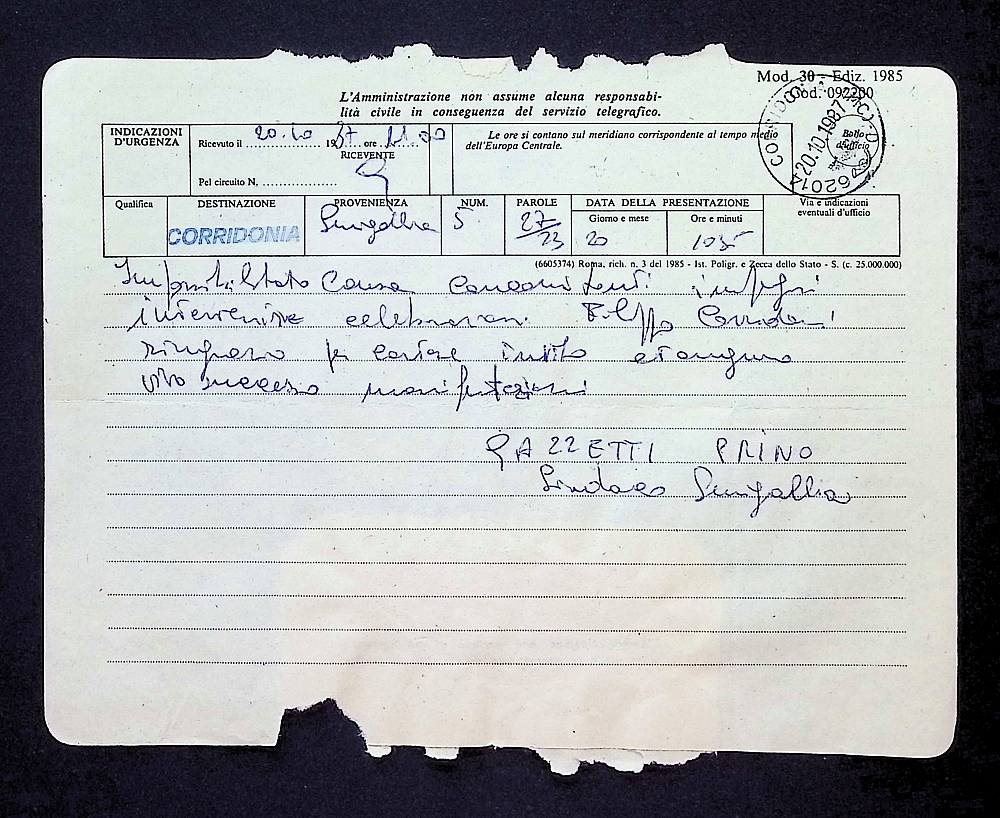 Mod. 30 - Ediz. 1985
Cod. 092200
L'Amministrazione non assume alcuna responsabi-
lità civile in conseguenza del servizio telegrafico.
INDICAZIONI
D'URGENZA
Ricevuto il 20.10 1987 ore 11.00
RICEVENTE
Pel circuito N.
Le ore si contano sul meridiano corrispondente al tempo medio
dell'Europa Centrale.
Bollo
d'ufficio
CORRIDONIA (MC)
20.10.1987
62014
Qualifica
DESTINAZIONE
CORRIDONIA
PROVENIENZA
Senigallia
NUM.
5
PAROLE
27/23
DATA DELLA PRESENTAZIONE
Giorno e mese
20
Ore e minuti
1035
Via e indicazioni
eventuali d'ufficio
(6605374) Roma, rich. n. 3 del 1985 - Ist. Poligr. e Zecca dello Stato - S. (c. 25.000.000)
Impossibilitato Causa Concomitanti impegni
intervenire celebrazioni Filippo Corridoni
ringrazio per cortese invito et auguro
vivo successo manifestazioni
GAZZETTI PRINO
Sindaco Senigallia